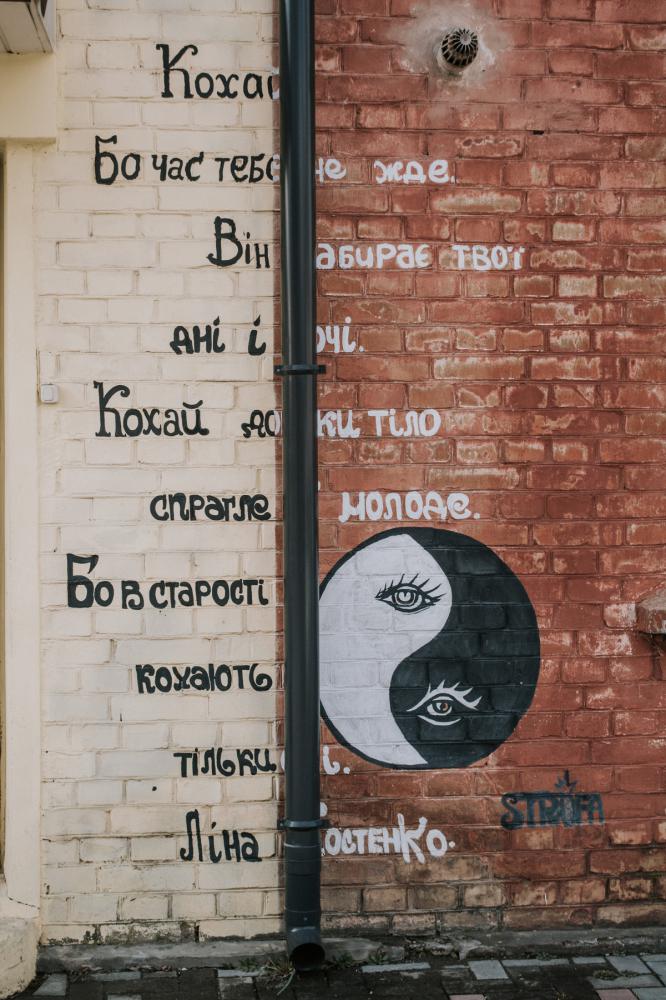 Коха
Бо час тебе не жде.
Він абирає твої
дні і очі.
Кохай до ки тіло
спрагле молоде.
Бо в старості
кохають
тільки і.
Ліна остенко.
STROFA